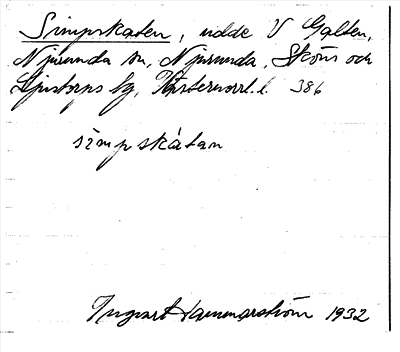 Simpskaten, udde V Galten,
Njurunda sn, Njurunda, Sköns och
Ljustorps tg, Västernorrl. l. 386
simpskátan
Ingvar Hammarström 1932